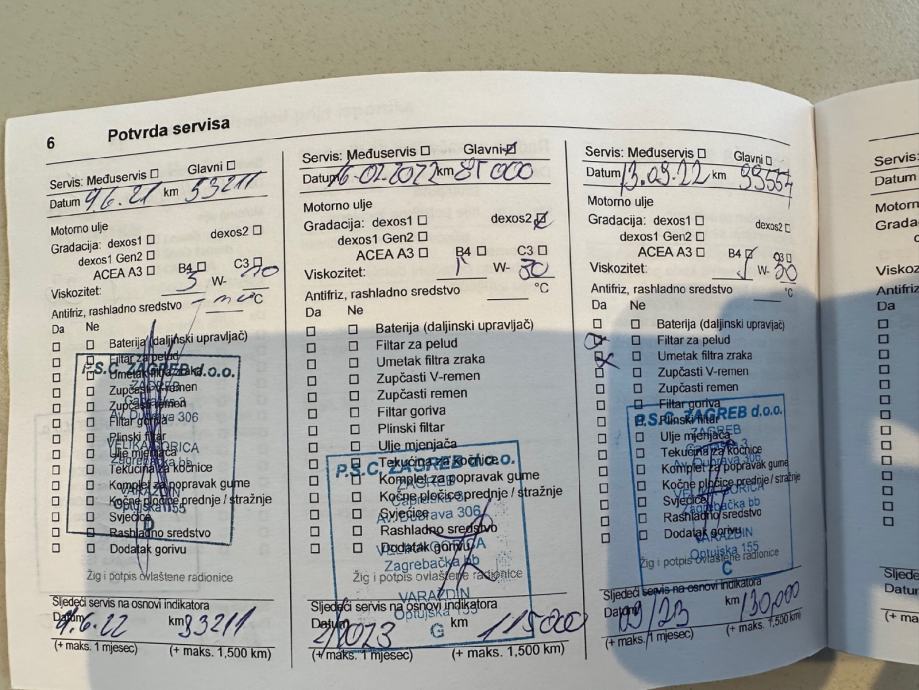 6 Potvrda servisa
Servis: Međuservis Glavni
Datum 9.6.21 km 53211
Motorno ulje
Gradacija: dexos1 dexos2
dexos1 Gen2
ACEA A3 B4 C3
Viskozitet: 5 W-
Antifriz, rashladno sredstvo °C
Da Ne
Baterija (daljinski upravljač)
Filtar za pelud
Umetak filtra zraka
Zupčasti V-remen
Zupčasti remen
Filtar goriva
Plinski filtar
Ulje mjenjača
Tekućina za kočnice
Komplet za popravak gume
Kočne pločice prednje / stražnje
Svjećice
Rashladno sredstvo
Dodatak gorivu
P.S.C. ZAGREB d.o.o.
ZAGREB
Av. Dubrava 306
VELIKA GORICA
Zagrebačka bb
VARAŽDIN
Optujska 155
D
Žig i potpis ovlaštene radionice
Sljedeći servis na osnovi indikatora
Datum 9.6.22 km 83211
(+ maks. 1 mjesec) (+ maks. 1,500 km)
Servis: Međuservis Glavni
Datum 16-02.2022 km 85000
Motorno ulje
Gradacija: dexos1 dexos2
dexos1 Gen2
ACEA A3 B4 C3
Viskozitet: W- 30
Antifriz, rashladno sredstvo °C
Da Ne
Baterija (daljinski upravljač)
Filtar za pelud
Umetak filtra zraka
Zupčasti V-remen
Zupčasti remen
Filtar goriva
Plinski filtar
Ulje mjenjača
Tekućina za kočnice
Komplet za popravak gume
Kočne pločice prednje / stražnje
Svjećice
Rashladno sredstvo
Dodatak gorivu
P.S.C. ZAGREB d.o.o.
ZAGREB
Av. Dubrava 306
VELIKA GORICA
Zagrebačka bb
VARAŽDIN
Optujska 155
G
Žig i potpis ovlaštene radionice
Sljedeći servis na osnovi indikatora
Datum 2/2023 km 115000
(+ maks. 1 mjesec) (+ maks. 1,500 km)
Servis: Međuservis Glavni
Datum 13.09.22 km 99554
Motorno ulje
Gradacija: dexos1 dexos2
dexos1 Gen2
ACEA A3 B4 C3
Viskozitet: W- 30
Antifriz, rashladno sredstvo °C
Da Ne
Baterija (daljinski upravljač)
Filtar za pelud
Umetak filtra zraka
Zupčasti V-remen
Zupčasti remen
Filtar goriva
Plinski filtar
Ulje mjenjača
Tekućina za kočnice
Komplet za popravak gume
Kočne pločice prednje / stražnje
Svjećice
Rashladno sredstvo
Dodatak gorivu
P.S.C. ZAGREB d.o.o.
ZAGREB
Av. Dubrava 306
VELIKA GORICA
Zagrebačka bb
VARAŽDIN
Optujska 155
C
Žig i potpis ovlaštene radionice
Sljedeći servis na osnovi indikatora
Datum 09/23 km 130,000
(+ maks. 1 mjesec) (+ maks. 1,500 km)
Servis:
Datum
Viskoz
Antifriz
Da
Sljede
Datum